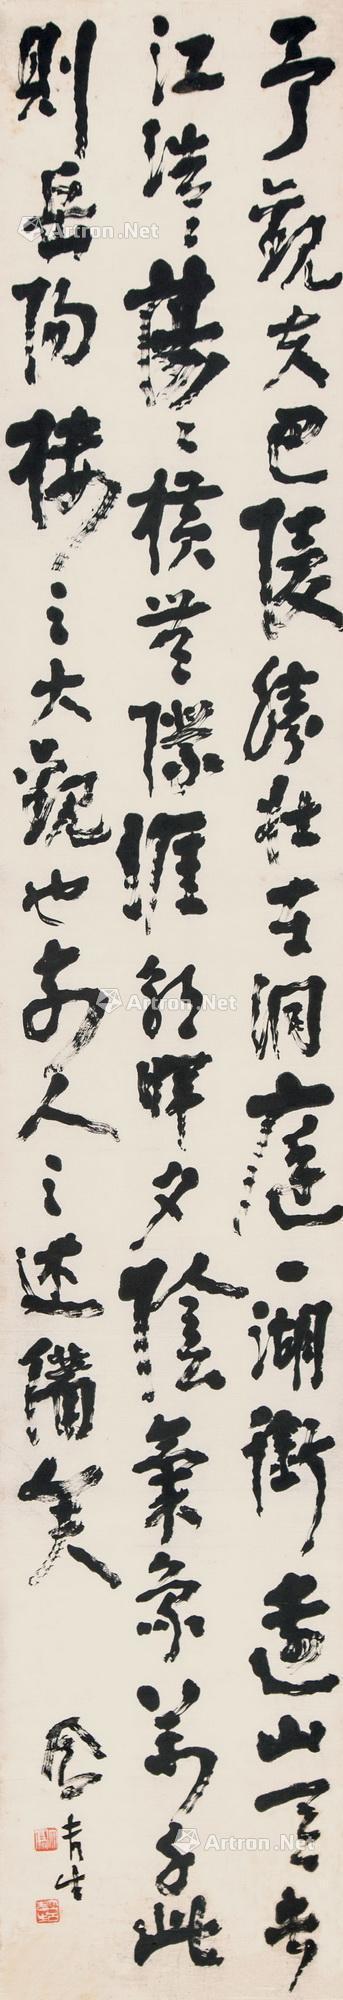 予觀夫巴陵勝狀在洞庭一湖銜遠山吞長
江浩〻蕩〻橫無際涯朝暉夕陰氣象萬千此
則岳陽樓之大觀也前人之述備矣
Artron.Net
Artron.Net
Artron.Net
Artron.Net
Artron.Net
Artron.Net
Artron.Net
Artron.Net